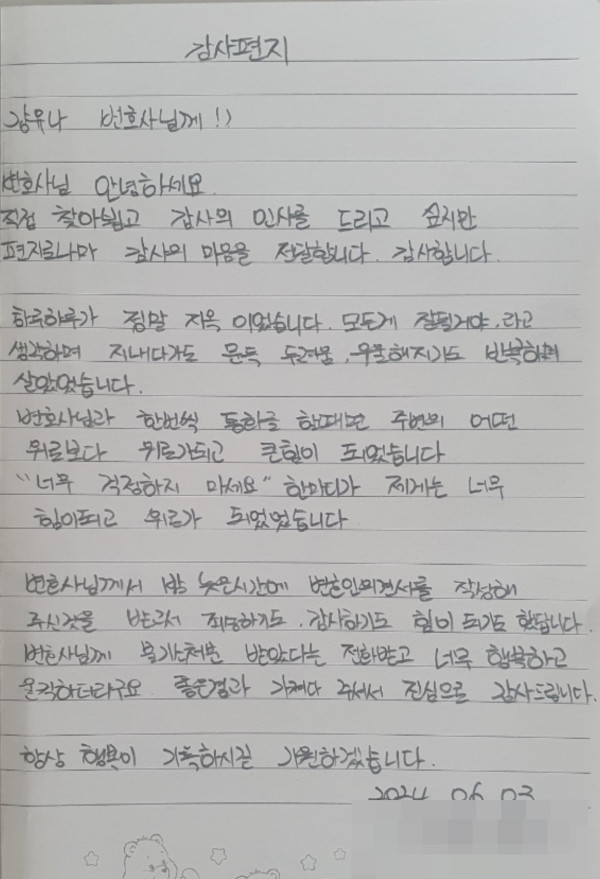 감사편지
강유나 변호사님께!)
변호사님 안녕하세요
직접 찾아뵙고 감사의 인사를 드리고 싶지만
편지로나마 감사의 마음을 전달합니다. 감사합니다.
하루하루가 정말 지옥 이었습니다. 모든게 잘될거야. 라고
생각하며 지내다가도 문득 두려움, 우울해지기도 반복하며
살았었습니다.
변호사님과 한번씩 통화를 할때면 주변의 어떤
위로보다 위로가되고 큰힘이 되었습니다
"너무 걱정하지 마세요" 한마디가 제게는 너무
힘이되고 위로가 되었었습니다
변호사님께서 밤 늦은시간에 변호인의견서를 작성해
주신것을 받고서 죄송하기도, 감사하기도 힘이 되기도 했답니다.
변호사님께 불기소처분 받았다는 전화받고 너무 행복하고
울컥하더라구요 좋은결과 가져다 주셔서 진심으로 감사드립니다.
항상 행복이 가득하시길 기원하겠습니다.
2024 06 03